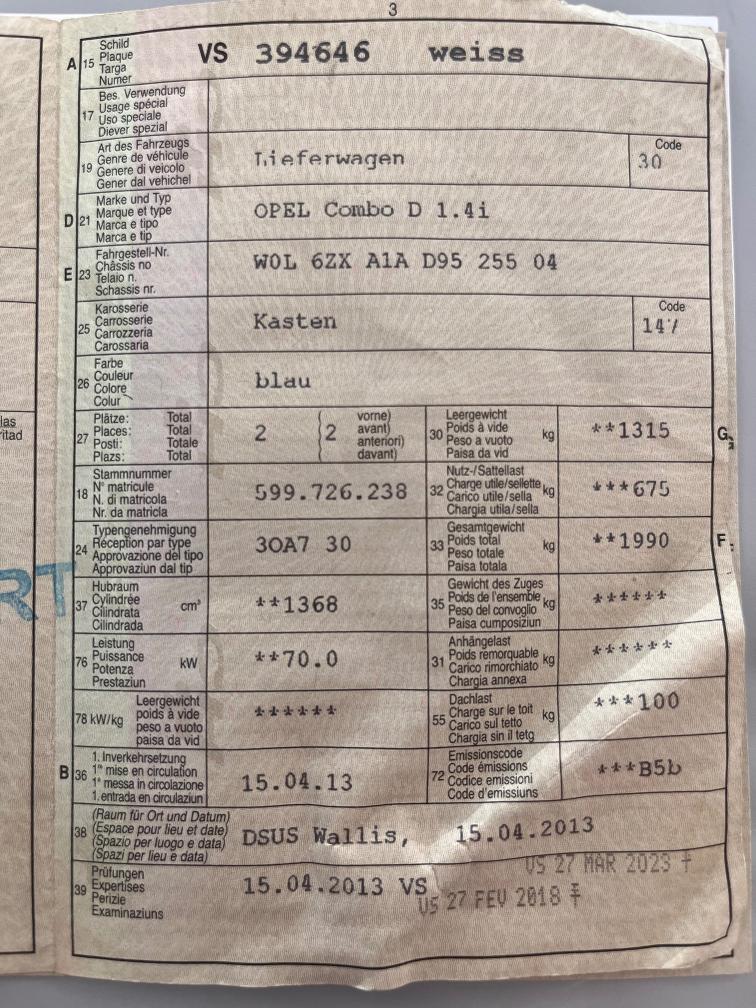 3
A 15 Schild
Plaque
Targa
Numer
VS 394646 weiss
17 Bes. Verwendung
Usage spécial
Uso speciale
Diever spezial
19 Art des Fahrzeugs
Genre de véhicule
Genere di veicolo
Gener dal vehichel
Lieferwagen
Code
30
D 21 Marke und Typ
Marque et type
Marca e tipo
Marca e tip
OPEL Combo D 1.4i
E 23 Fahrgestell-Nr.
Châssis no
Telaio n.
Schassis nr.
W0L 6ZX A1A D95 255 04
25 Karosserie
Carrosserie
Carrozzeria
Carossaria
Kasten
Code
147
26 Farbe
Couleur
Colore
Colur
blau
27 Plätze: Total
Places: Total
Posti: Totale
Plazs: Total
2
2 vorne)
avant)
anteriori)
davant)
30 Leergewicht
Poids à vide
Peso a vuoto
Paisa da vid
kg
**1315
G
18 Stammnummer
N° matricule
N. di matricola
Nr. da matricla
599.726.238
32 Nutz-/Sattellast
Charge utile/sellette
Carico utile/sella
Chargia utila/sella
kg
***675
24 Typengenehmigung
Réception par type
Approvazione del tipo
Approvaziun dal tip
3OA7 30
33 Gesamtgewicht
Poids total
Peso totale
Paisa totala
kg
**1990
F
37 Hubraum
Cylindrée
Cilindrata
Cilindrada
cm³
**1368
35 Gewicht des Zuges
Poids de l'ensemble
Peso del convoglio
Paisa cumposiziun
kg
******
76 Leistung
Puissance
Potenza
Prestaziun
kW
**70.0
31 Anhängelast
Poids remorquable
Carico rimorchiato
Chargia annexa
kg
******
78 kW/kg Leergewicht
poids à vide
peso a vuoto
paisa da vid
******
55 Dachlast
Charge sur le toit
Carico sul tetto
Chargia sin il tetg
kg
***100
B 36 1. Inverkehrsetzung
1re mise en circulation
1a messa in circolazione
1. entrada en circulaziun
15.04.13
72 Emissionscode
Code émissions
Codice emissioni
Code d'emissiuns
***B5b
38 (Raum für Ort und Datum)
(Espace pour lieu et date)
(Spazio per luogo e data)
(Spazi per lieu e data)
DSUS Wallis, 15.04.2013
39 Prüfungen
Expertises
Perizie
Examinaziuns
15.04.2013 VS
VS 27 MAR 2023
VS 27 FEV 2018
las
ritad
RT